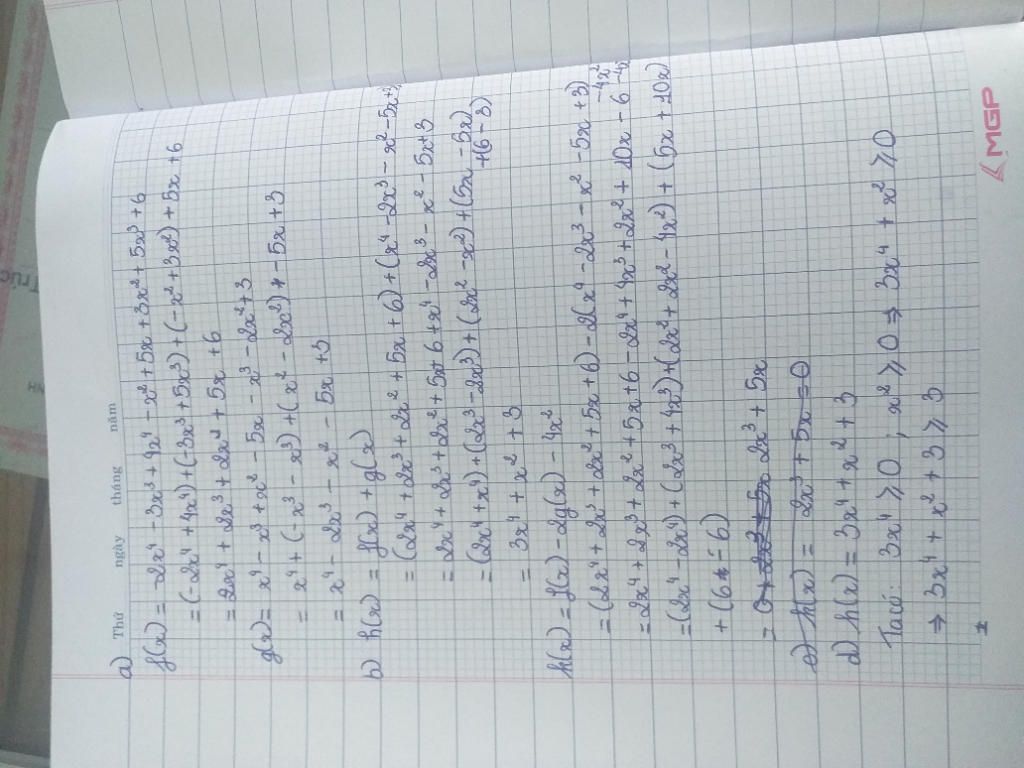 Thứ ngày tháng năm
a)
f(x) = -2x⁴ - 3x³ + 4x⁴ - x² + 5x + 3x² + 5x³ + 6
= (-2x⁴ + 4x⁴) + (-3x³ + 5x³) + (-x² + 3x²) + 5x + 6
= 2x⁴ + 2x³ + 2x² + 5x + 6
g(x) = x⁴ - x³ + x² - 5x - x³ - 2x² + 3
= x⁴ + (-x³ - x³) + (x² - 2x²) + - 5x + 3
= x⁴ - 2x³ - x² - 5x + 3
b) h(x) = f(x) + g(x)
= (2x⁴ + 2x³ + 2x² + 5x + 6) + (x⁴ - 2x³ - x² - 5x + 3
= 2x⁴ + 2x³ + 2x² + 5x + 6 + x⁴ - 2x³ - x² - 5x + 3
= (2x⁴ + x⁴) + (2x³ - 2x³) + (2x² - x²) + (5x - 5x)
+ (6 - 3)
= 3x⁴ + x² + 3
k(x) = f(x) - 2g(x) - 4x²
= (2x⁴ + 2x³ + 2x² + 5x + 6) - 2(x⁴ - 2x³ - x² - 5x + 3) - 4x²
= 2x⁴ + 2x³ + 2x² + 5x + 6 - 2x⁴ + 4x³ + 2x² + 10x - 6 - 4x
= (2x⁴ - 2x⁴) + (2x³ + 4x³) + (2x² + 2x² - 4x²) + (5x + 10x)
+ (6 - 6)
= 2x³ + 5x
c) h(x) = 2x³ + 5x = 0
d) h(x) = 3x⁴ + x² + 3
Ta có: 3x⁴ ⩾ 0 ; x² ⩾ 0 ⇒ 3x⁴ + x² ⩾ 0
⇒ 3x⁴ + x² + 3 ⩾ 3
MGP